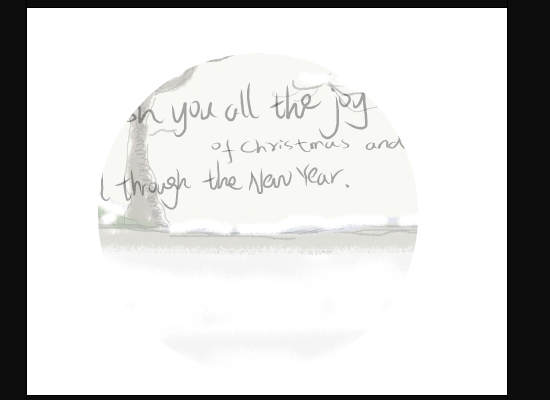 you all the joy
of Christmas and
through the New Year.